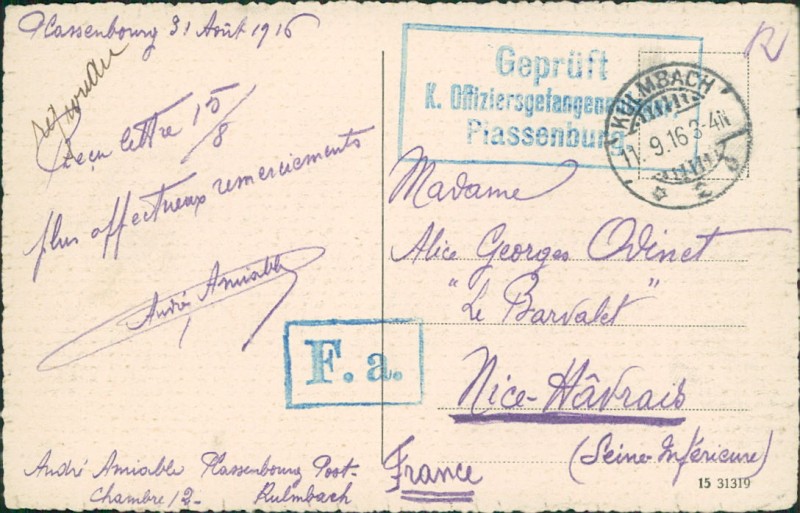 Plassenbourg 31 Août 1916
répondu
Reçu lettre 15/8
plus affectueux remerciements
André Amiable
F. a.
André Amiable Plassenbourg Post-
Chambre 12- Kulmbach
Geprüft
K. Offiziersgefangenen
Plassenburg
KULMBACH
11. 9. 16 3-4N
2
Madame
Alice Georges Odinet
"Le Barvalet"
Nice-Hâvrais
(Seine-Inférieure)
France
15 31319